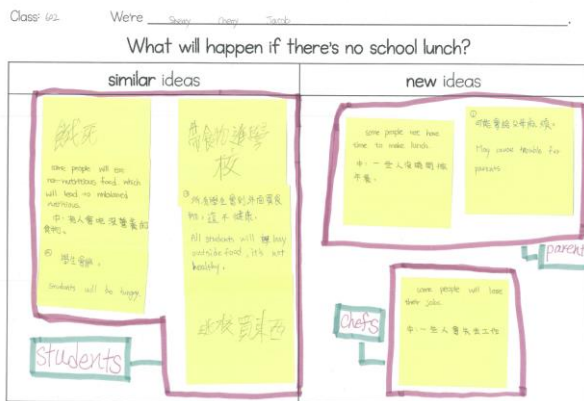 Class: 602 We're Sherry Cherry Jacob.
What will happen if there's no school lunch?
similar ideas
new ideas
餓死
some people will eat
non-nutritious food, which
will lead to unbalanced
nutritious.
中:有人會吃沒營養的
食物。
學生會餓。
students will be hungry
帶食物進學
校
所有學生會到外面買食
物,這不健康。
All students will buy
outside food, it's not
healthy.
買東西
students
some people not have
time to make lunch.
中:一些人沒時間做
午餐。
可能會給父母麻煩。
May cause trouble for
parents
parent
some people will lose
their jobs.
中:一些人會失去工作
chefs